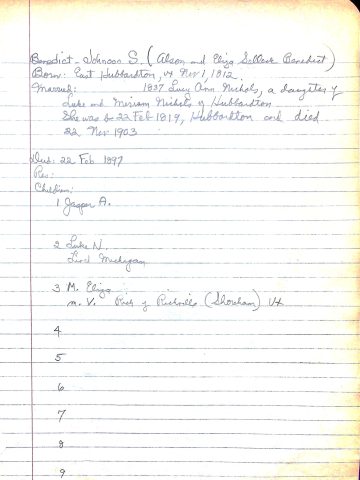 Benedict - Johnson S. (Alson and Eliza Selleck Benedict)
Born: East Hubbardton, Vt Nov 1, 1812.
Married: 1837 Lucy Ann Nichols, a daughter of
Luke and Miriam Nichols of Hubbardton
She was b 22 Feb 1819, Hubbardton and died
22 Nov 1903
Died: 22 Feb 1897
Res:
Children:
1 Jasper A.
2 Luke N.
Lived Michigan
3 M. Eliza
m. V. Rich of Richville (Shoreham) Vt
4
5
6
7
8
9